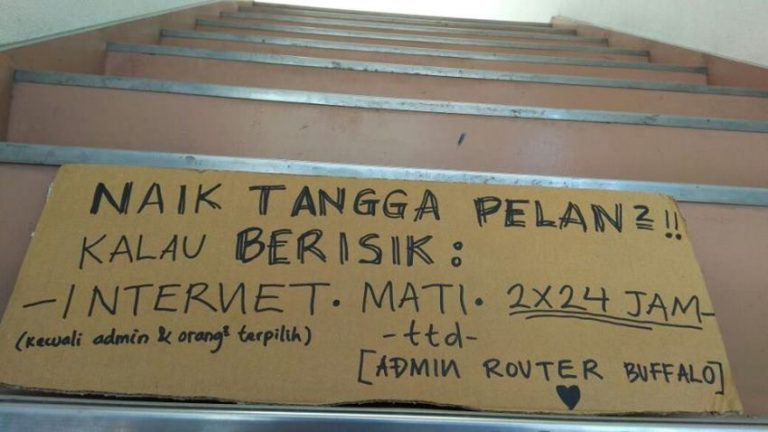 NAIK TANGGA PELAN2!!
KALAU BERISIK:
-INTERNET. MATI. 2X24 JAM-
(kecuali admin & orang2 terpilih)
-ttd-
[ADMIN ROUTER BUFFALO]
♥